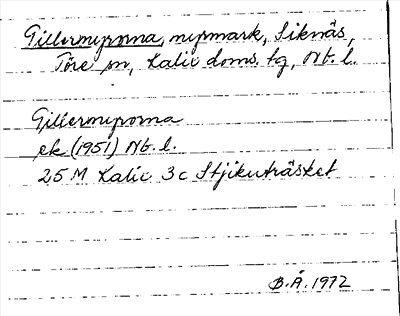 Gillermyrorna, myrmark, Siknäs,
Töre sn, Kalix doms. tg, Nb. l.
Gillermyrorna
ek (1951) Nb. l.
25 M Kalix 3 c Stjikuträsket
B.Å. 1972